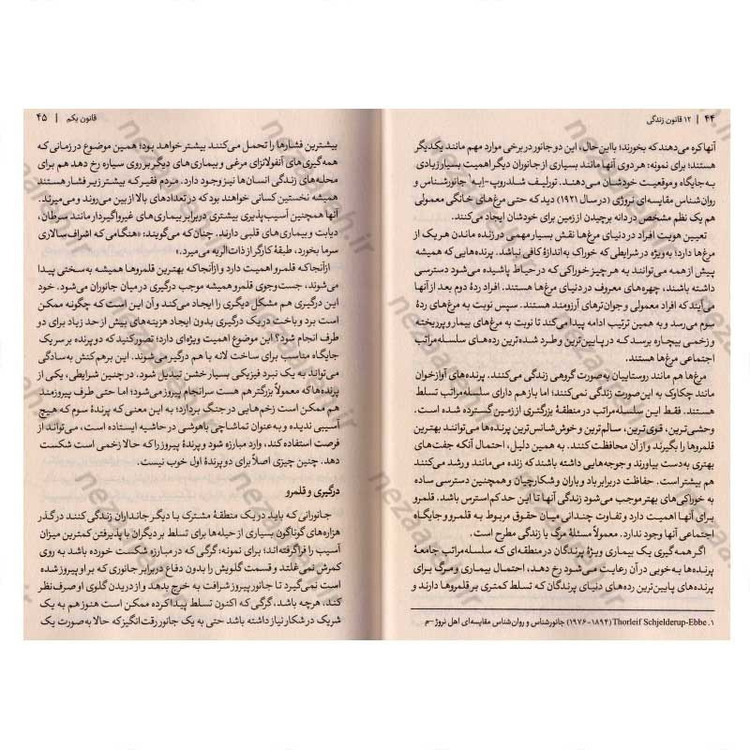 ۴۴ | ۱۲ قانون زندگی
آنها کره می‌دهند که بخورند؛ بااین‌حال، این دو جانور در برخی موارد مهم مانند یکدیگر
هستند؛ برای نمونه؛ هر دوی آنها مانند بسیاری از جانوران دیگر اهمیت بسیار زیادی
به جایگاه و موقعیت خودشان می‌دهند. تورلیف شلدروپ-اِبه۱ جانورشناس و
روان‌شناس مقایسه‌ای نروژی (در سال ۱۹۲۱) دید که حتی مرغ‌های خانگی معمولی
هم یک نظم مشخص در دانه برچیدن از زمین برای خودشان ایجاد می‌کنند.
تعیین هویت افراد در دنیای مرغ‌ها نقش بسیار مهمی در زنده ماندن هر یک از
مرغ‌ها دارد؛ به‌ویژه در شرایطی که خوراک به‌اندازۀ کافی نباشد. پرنده‌هایی که همیشه
پیش از همه می‌توانند به هر چیز خوراکی که در حیاط پاشیده می‌شود دسترسی
داشته باشند، چهره‌های معروف در دنیای مرغ‌ها هستند. افراد ردۀ دوم بعد از آنها
می‌آیند که افراد معمولی و جوان‌ترهای آرزومند هستند. سپس نوبت به مرغ‌های ردۀ
سوم می‌رسد و به همین ترتیب ادامه پیدا می‌کند تا نوبت به مرغ‌های بیمار و پرریخته
و زخمی بیچاره برسد که در پایین‌ترین و طرد شده‌ترین رده‌های سلسله‌مراتب
اجتماعی مرغ‌ها هستند.
مرغ‌ها هم مانند روستاییان به‌صورت گروهی زندگی می‌کنند. پرنده‌های آوازخوان
مانند چکاوک به این‌صورت زندگی نمی‌کنند؛ اما باز هم دارای سلسله‌مراتب تسلط
هستند. فقط این سلسله‌مراتب در منطقۀ بزرگتری از زمین گسترده شده است.
وحشی‌ترین، قوی‌ترین، سالم‌ترین و خوش‌شانس‌ترین پرنده‌ها می‌توانند بهترین
قلمروها را بگیرند و از آن محافظت کنند. به همین دلیل، احتمال آنکه جفت‌های
بهتری به‌دست بیاورند و جوجه‌هایی داشته باشند که زنده می‌مانند و رشد می‌کنند
هم بیشتر است. حفاظت در برابر باد و باران و شکارچیان و همچنین دسترسی ساده
به خوراکی‌های بهتر موجب می‌شود زندگی آنها تا این حد کم‌استرس باشد. قلمرو
برای آنها اهمیت دارد و تفاوت چندانی میان حقوق مربوط به قلمرو و جایگاه
اجتماعی آنها وجود ندارد. معمولاً مسئلۀ مرگ یا زندگی مطرح است.
اگر همه‌گیری یک بیماری ویژۀ پرندگان در منطقه‌ای که سلسله‌مراتب جامعۀ
پرنده‌ها به‌خوبی در آن رعایت می‌شود رخ دهد، احتمال بیماری و مرگ برای
پرنده‌های پایین‌ترین رده‌های دنیای پرندگان که تسلط کمتری بر قلمروها دارند و
۱. Thorleif Schjelderup-Ebbe (۱۸۹۴-۱۹۷۶) جانورشناس و روان‌شناس مقایسه‌ای اهل نروژ -م
قانون یکم | ۴۵
بیشترین فشارها را تحمل می‌کنند بیشتر خواهد بود؛ همین موضوع در زمانی که
همه‌گیری‌های آنفولانزای مرغی و بیماری‌های دیگر بر روی سیاره رخ دهد هم برای
محله‌های زندگی انسان‌ها نیز وجود دارد. مردم فقیر که بیشتر زیر فشار هستند
همیشه نخستین کسانی خواهند بود که در تعدادهای بالا از بین می‌روند و می‌میرند.
آنها همچنین آسیب‌پذیری بیشتری در برابر بیماری‌های غیرواگیردار مانند سرطان،
دیابت و بیماری‌های قلبی دارند. چنان‌که می‌گویند: «هنگامی که اشراف‌سالاری
سرما بخورد، طبقۀ کارگر از ذات‌الریه می‌میرد.»
ازآنجاکه قلمرو اهمیت دارد و ازآنجاکه بهترین قلمروها همیشه به‌سختی پیدا
می‌شوند، جست‌وجوی قلمرو همیشه موجب درگیری در میان جانوران می‌شود. خود
این درگیری هم مشکل دیگری را ایجاد می‌کند و آن این است که چگونه ممکن
است برد و باخت در یک درگیری بدون ایجاد هزینه‌های بیش از حد زیاد برای دو
طرف انجام شود؟ این موضوع اهمیت ویژه‌ای دارد؛ تصور کنید که دو پرنده بر سر یک
جایگاه مناسب برای ساخت لانه با هم درگیر می‌شوند. این برهم‌کنش به‌سادگی
می‌تواند به یک نبرد فیزیکی بسیار خشن تبدیل شود. در چنین شرایطی، یکی از
پرنده‌ها که معمولاً بزرگتر هم هست سرانجام پیروز می‌شود؛ اما حتی طرف پیروزمند
هم ممکن است زخم‌هایی در جنگ بردارد؛ به این معنی که پرندۀ سوم که هیچ
آسیبی ندیده و به‌عنوان تماشاچی باهوشی در حاشیه ایستاده است، می‌تواند از
فرصت استفاده کند، وارد مبارزه شود و پرندۀ پیروز را که حالا زخمی است شکست
دهد. چنین چیزی اصلاً برای دو پرندۀ اول خوب نیست.
درگیری و قلمرو
جانورانی که باید در یک منطقۀ مشترک با دیگر جانداران زندگی کنند در گذر
هزاره‌های گوناگون بسیاری از حیله‌ها برای تسلط بر دیگران با پذیرفتن کمترین میزان
آسیب را فراگرفته‌اند؛ برای نمونه؛ گرگی که در مبارزه شکست خورده باشد به روی
کمرش می‌غلتد و قسمت گلویش را بدون دفاع در برابر جانوری که بر او پیروز شده
است نمی‌گیرد تا جانور پیروز شرافت به خرج بدهد و از دریدن گلوی او صرف‌نظر
کند، هرچه باشد، گرگی که اکنون تسلط پیدا کرده ممکن است هنوز هم به یک
شریک در شکار نیاز داشته باشد حتی به یک جانور رقت‌انگیز که حالا به‌صورت یک
nezaareh.ir